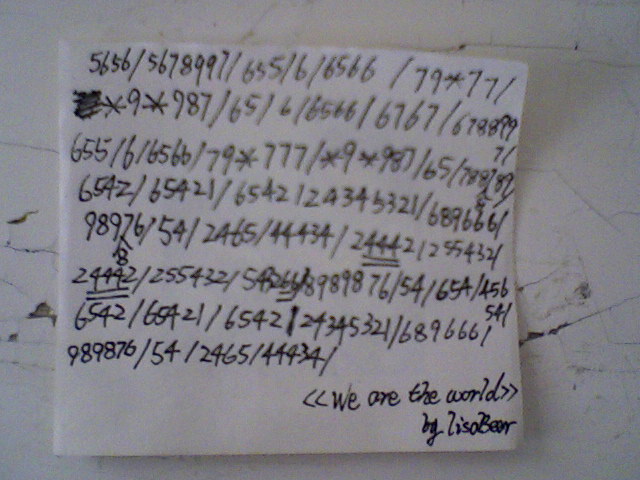 5656/5678997/655/6/6566 /79*77/
*-9*-987/65/6/6566/6767/678899
7/
655/6/6566/79*-777/*9*987/65/789/89/
6542/65421/6542124345321/689666/
98976/54/2465/44434/24442/255432/
8
24442/255432/ 8989876/54/654/456
541
6542/65421/65421 24345321/689666/
989876/54/2465/44434/
<<We are the world>>
by lisaBear